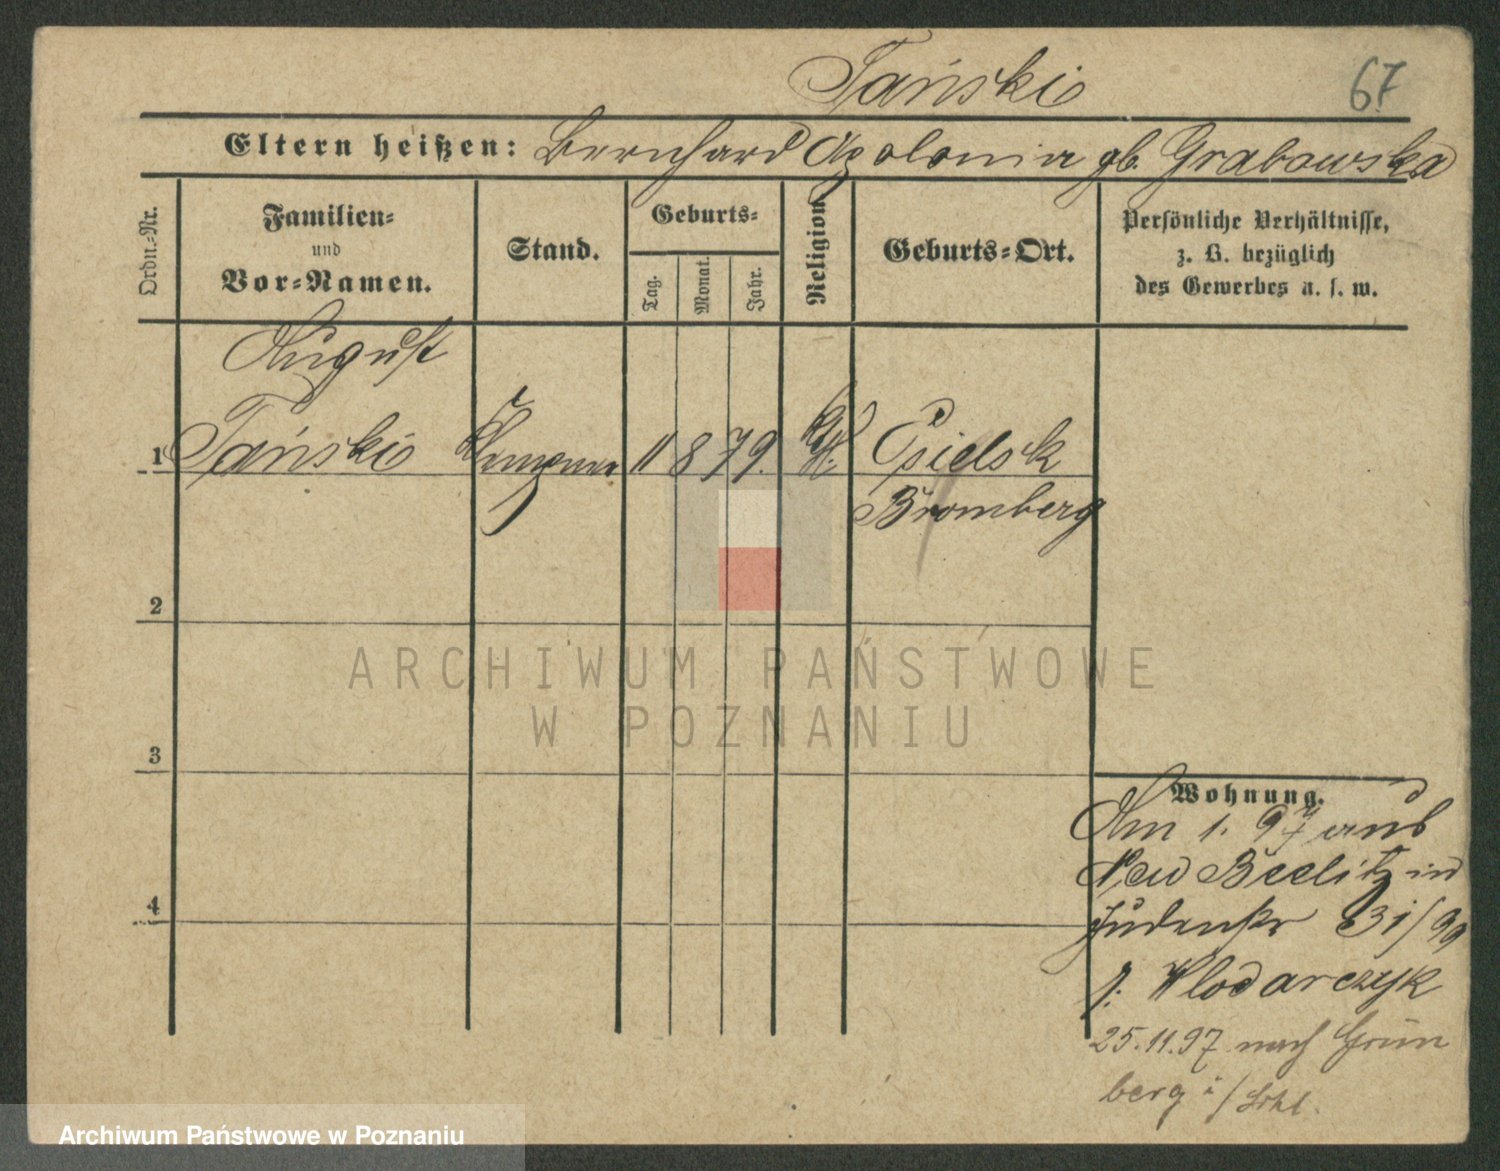 Tański
67
Eltern heißen: Bernhard Apolonia gb. Grabowska
Ordn.-Nr.
Familien-
und
Vor-Namen.
Stand.
Geburts-
Tag.
Monat.
Jahr.
Religion
Geburts-Ort.
Persönliche Verhältnisse,
z. B. bezüglich
des Gewerbes u. s. w.
August
1 Tański 11 8 79. Kth: Osielsk
Bromberg
2
3
4
Wohnung.
Am 1. 97 aus
Neu Beelitz in
Judenstr 31/99
b. Wlodarczyk
25.11.97 nach Grün
berg i/Schl.
ARCHIWUM PAŃSTWOWE
W POZNANIU
Archiwum Państwowe w Poznaniu